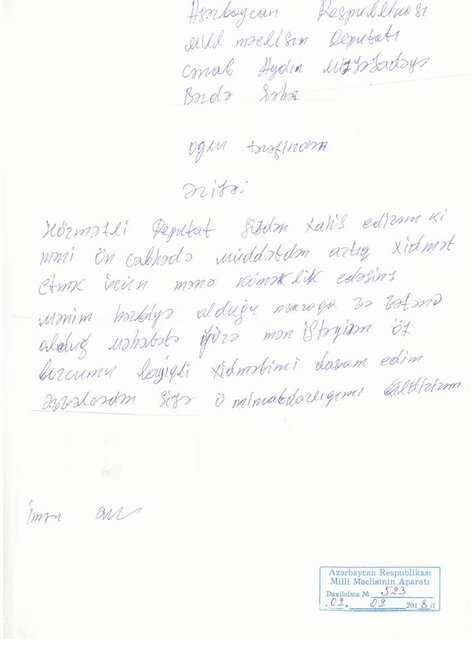 Azərbaycan Respublikası
Milli məclisin Deputatı
cənab Aydın
Bərdə
oğlu tərəfindən
ərizə
Hörmətli Deputat Sizdən xahiş edirəm ki
məni Ön cəbhədə müddətdən artıq xidmət
etmək üçün mənə köməklik edəsiniz
mənim hərbiyə olduğu marağa və vətənə
olduğ məhəbətə görə mən istəyirəm öz
borcumu layiqli xidmətimi davam edim
Əvvəlcədən sizə minnətdarlığımı bildirirəm
İmza
Azərbaycan Respublikası
Milli Məclisinin Aparatı
Daxilolma № 523
02. 02 2018 il